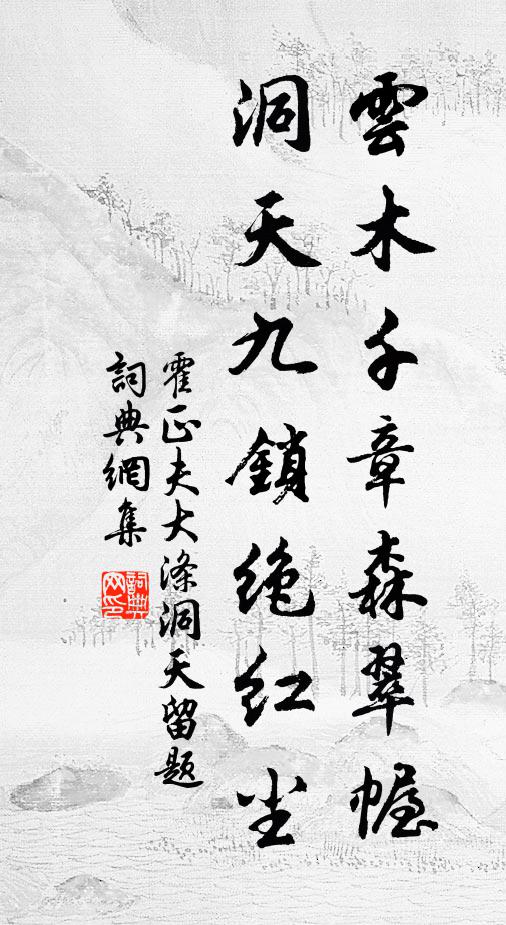 雲木千章森翠幄
洞天九鎖絶红尘
霍正夫大涤洞天留题
詞典網集
詞典网印